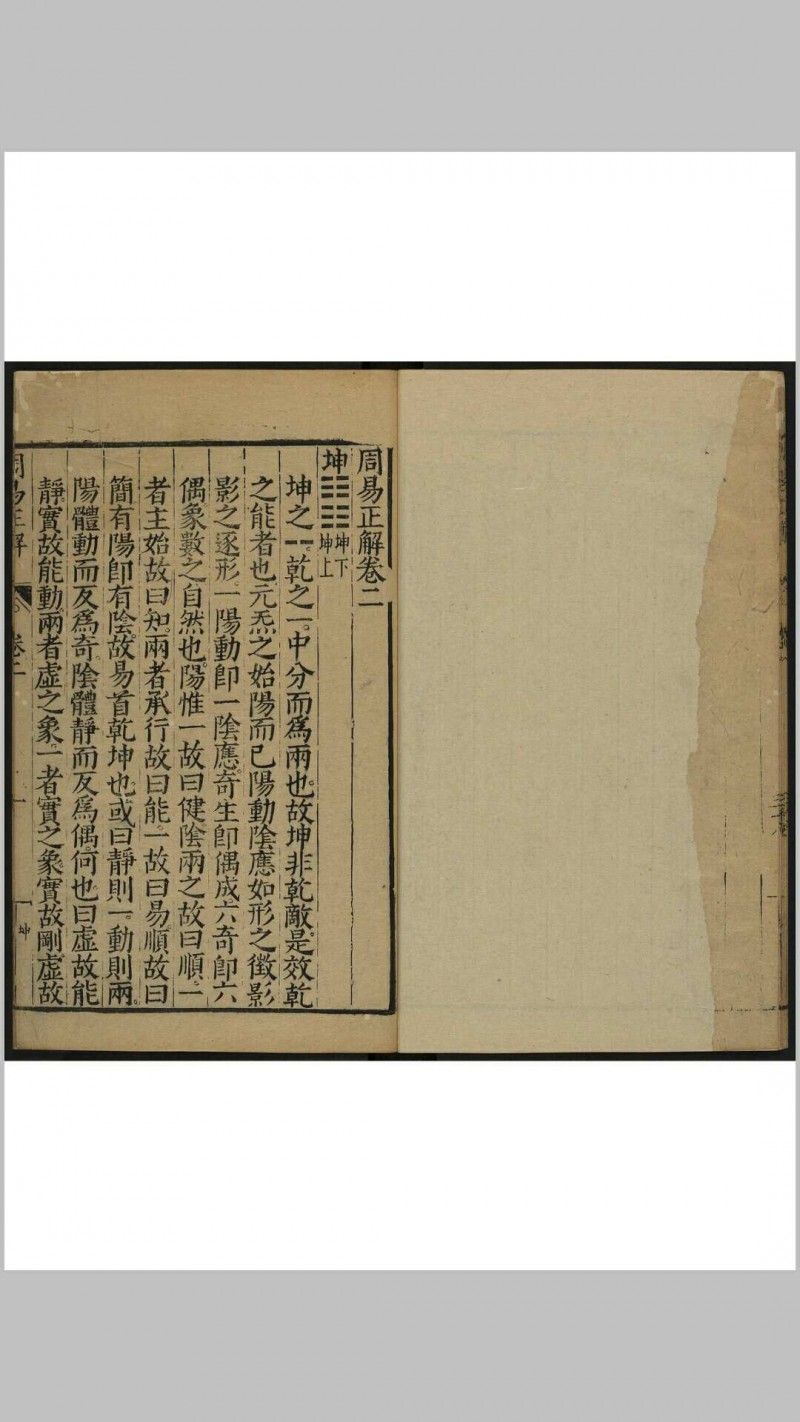 周易正解卷二
坤䷁坤下坤上
坤之⚋乾之⚊中分而爲兩也故坤非乾敵是效乾
之能者也元炁之始陽而已陽動陰應如形之徵影
影之逐形一陽動卽一陰應奇生卽偶成六奇卽六
偶象數之自然也陽惟一故曰健陰兩之故曰順一
者主始故曰知兩者承行故曰能一故曰易順故曰
簡有陽卽有陰故易首乾坤也或曰靜則一動則兩
陽體動而反爲奇陰體靜而反爲偶何也曰虛故能
靜實故能動兩者虛之象一者實之象實故剛虛故
周易正解 卷二 一 坤